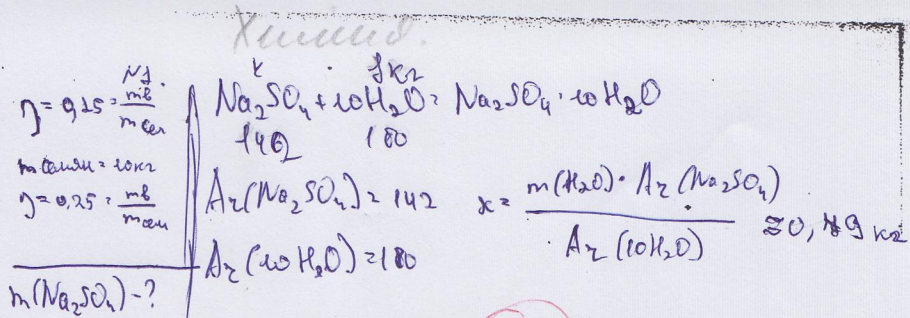 Химия.
N1.
η = 0,25 = mв/mсм
mсмеси = 10кг
η = 0,25 = mв/mсм
m(Na₂SO₄) - ?
x 1кг
Na₂SO₄ + 10H₂O = Na₂SO₄ · 10H₂O
142 180
Ar(Na₂SO₄) = 142
Ar(10H₂O) = 180
x = m(H₂O) · Ar(Na₂SO₄) / Ar(10H₂O) ≈ 0,79 кг